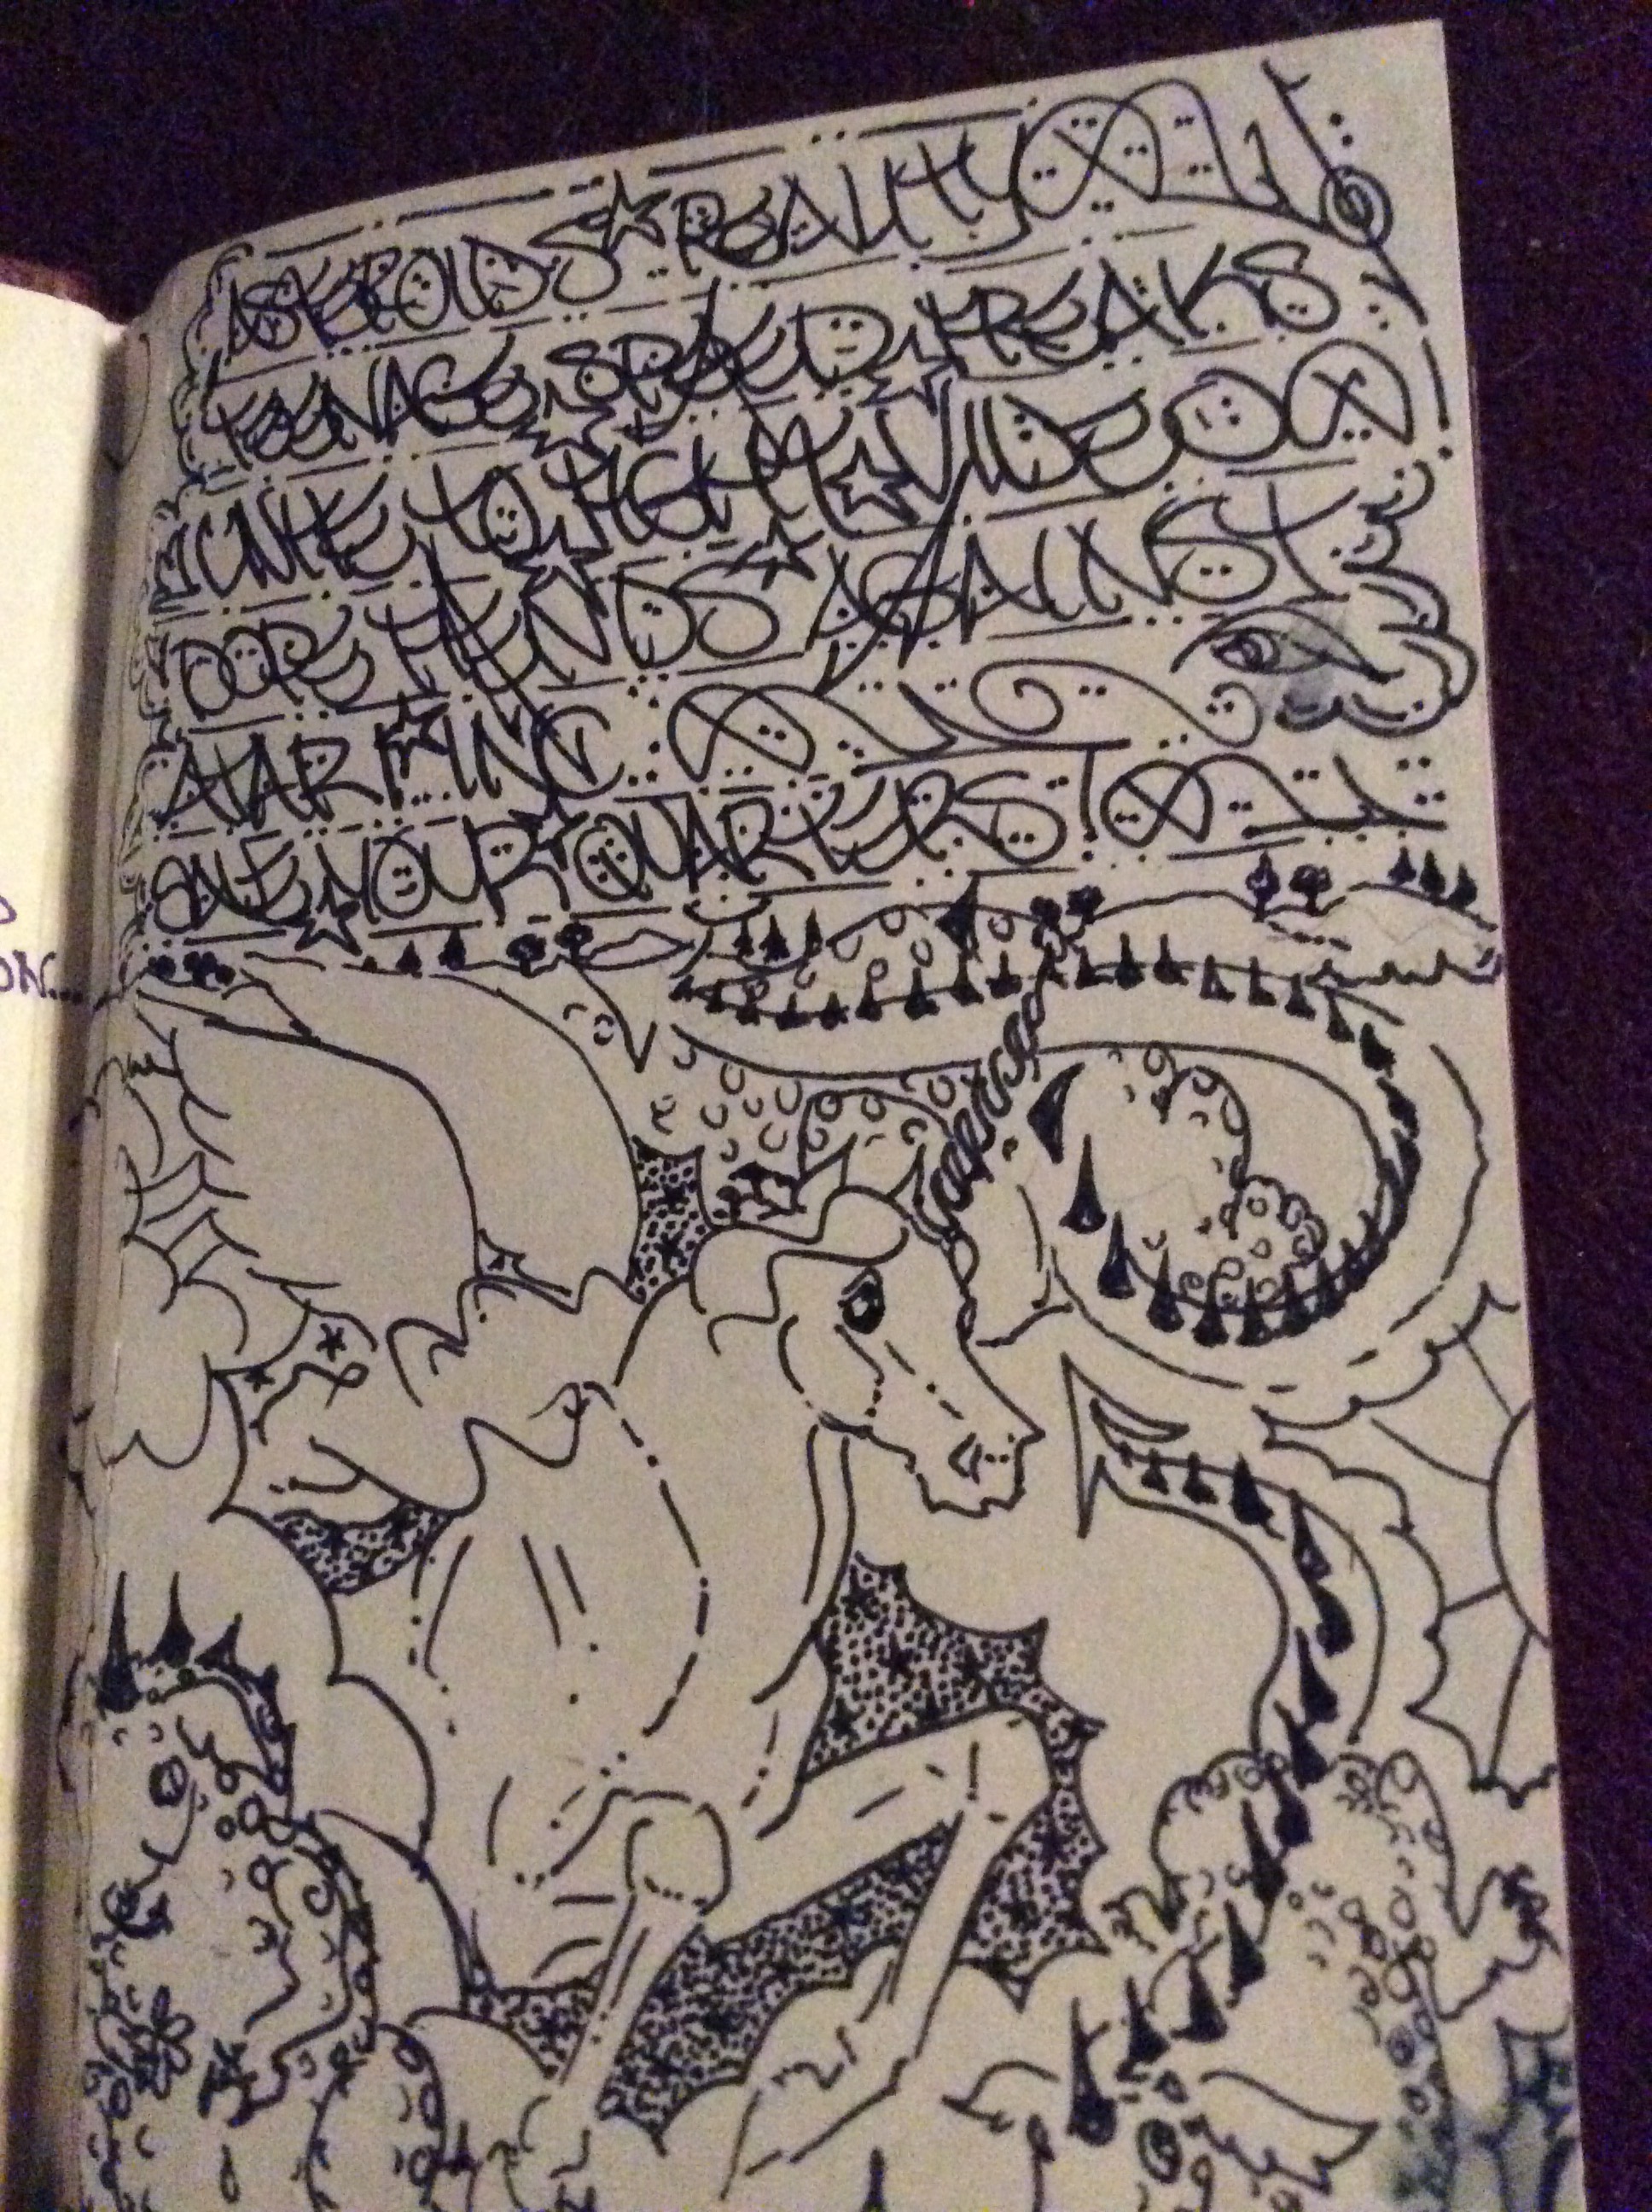 ASTEROIDS REALITY
TEENAGE SPEED FREAKS
UNITE TO FIGHT VIDEO
DOPE FIENDS AGAINST
ATARI INC.
SAVE YOUR QUARTERS!